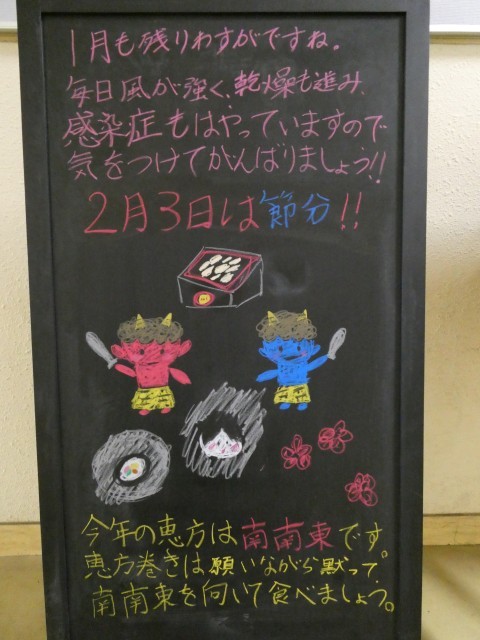 1月も残りわずかですね。
毎日風が強く、乾燥も進み、
感染症もはやっていますので
気をつけてがんばりましょう!!
2月3日は節分!!
今年の恵方は南南東です。
恵方巻きは願いながら黙って、
南南東を向いて食べましょう。